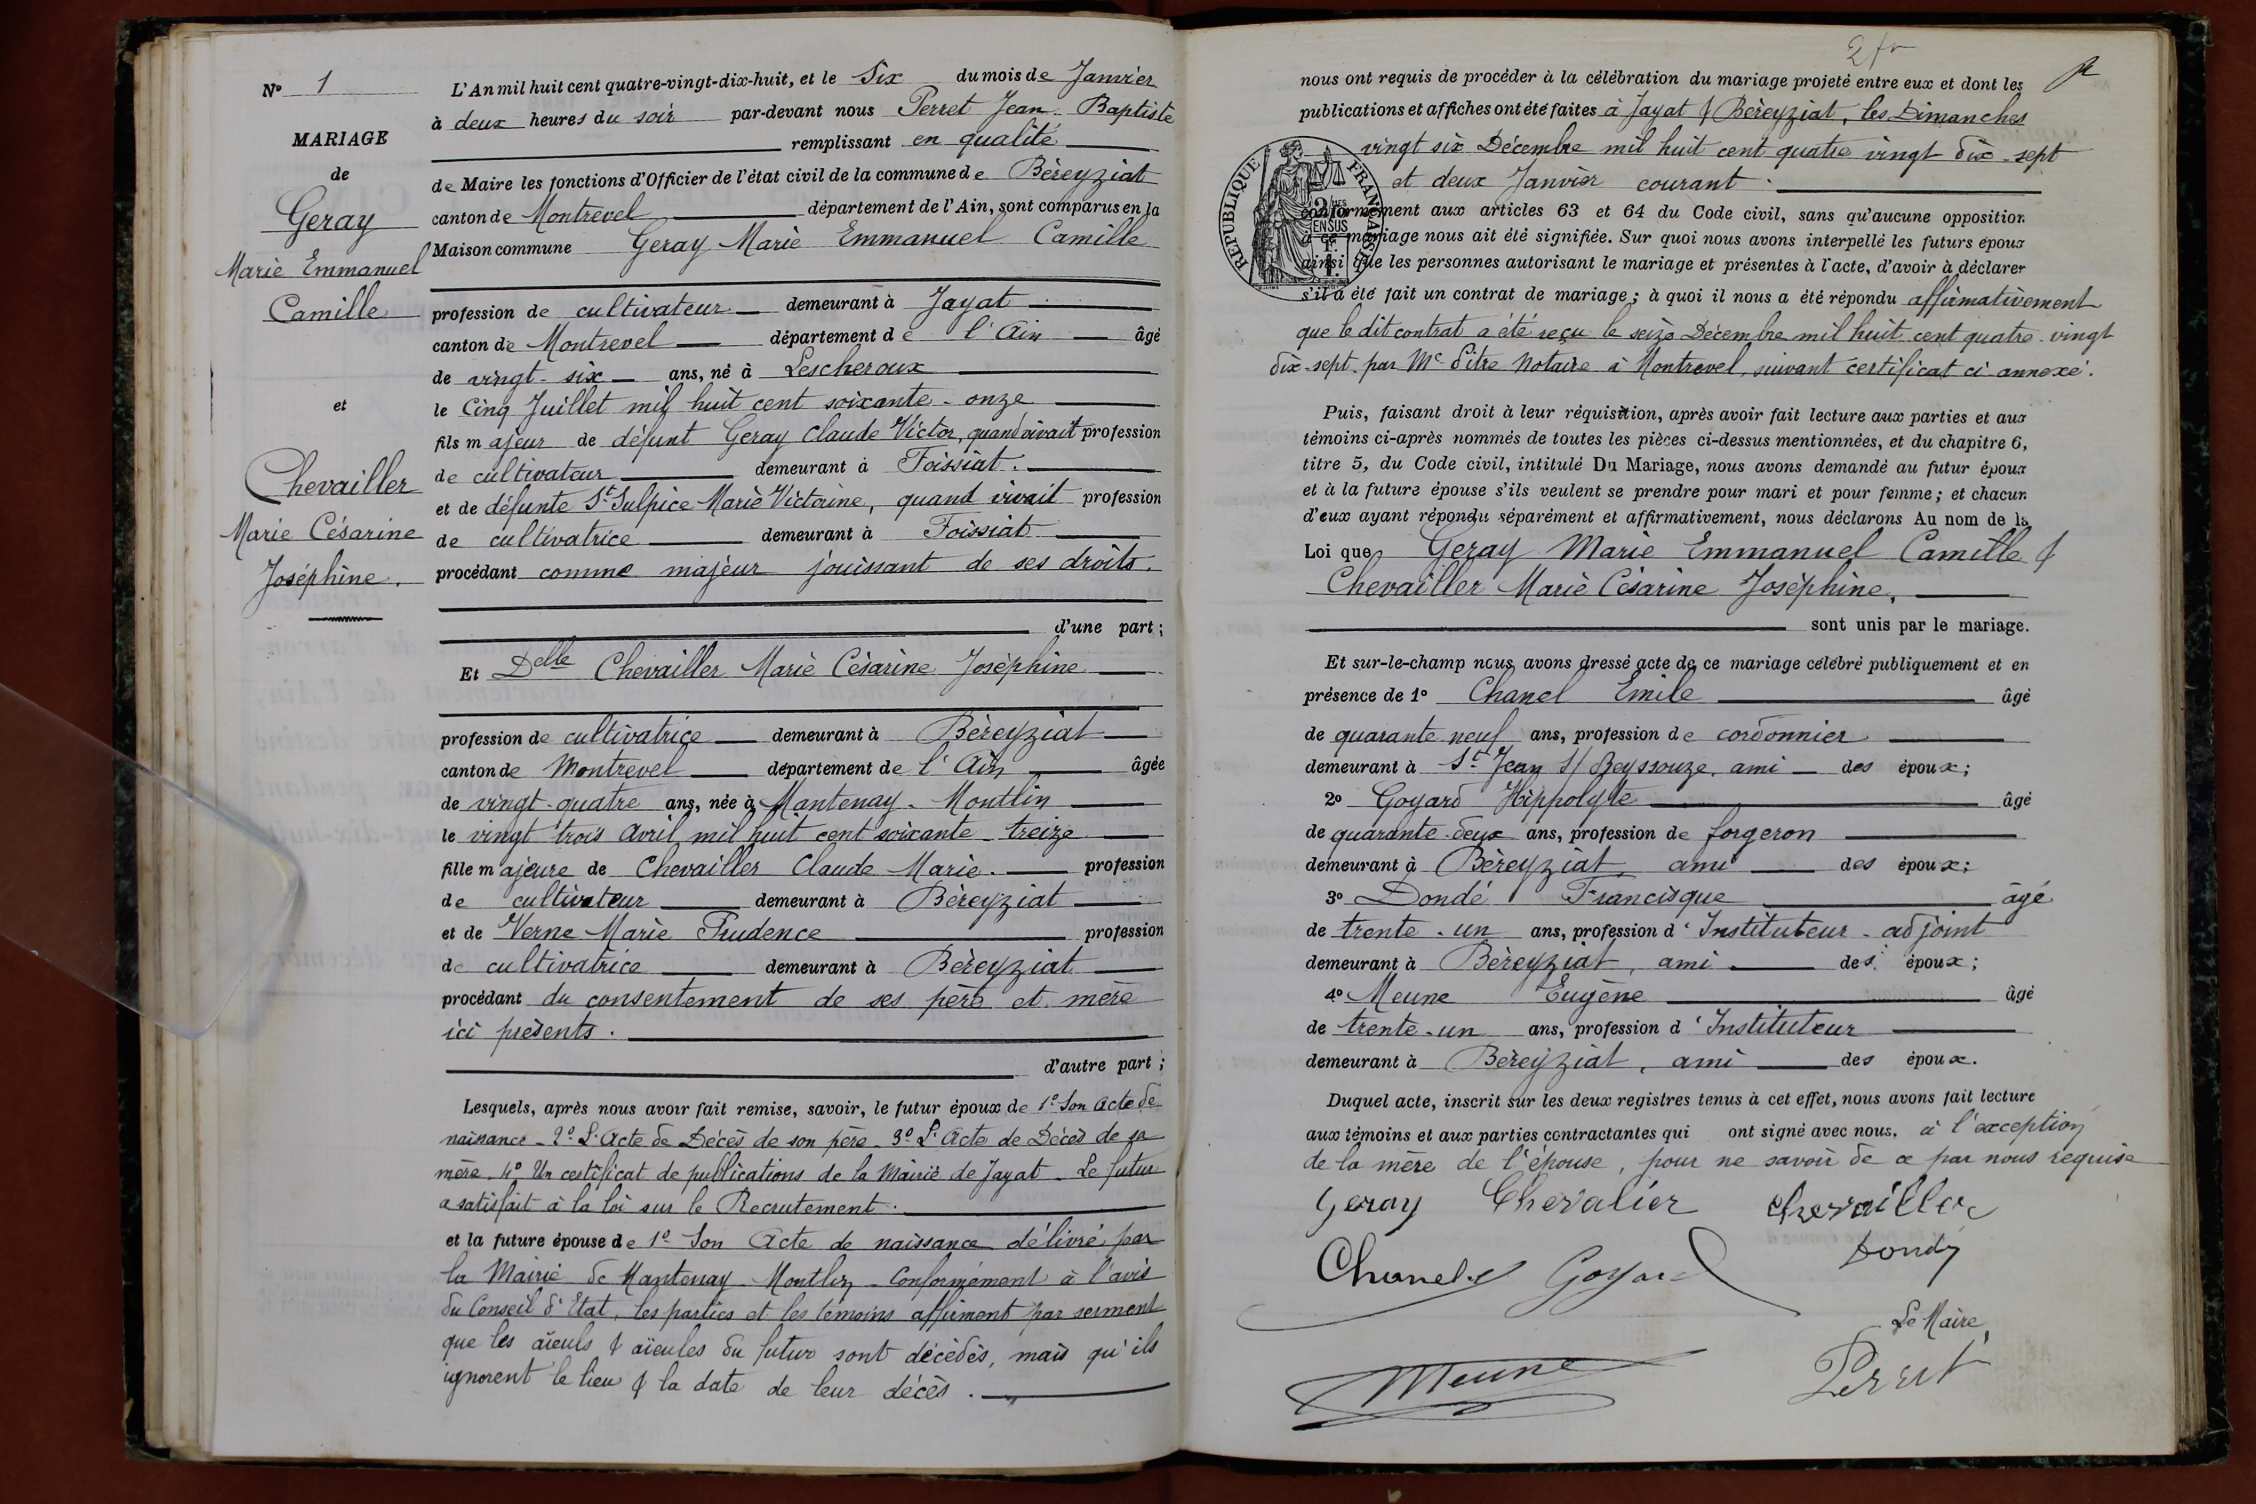 N° 1
MARIAGE
de
Geray
Marie Emmanuel
Camille
et
Chevailler
Marie Césarine
Joséphine.
L'An mil huit cent quatre-vingt-dix-huit, et le Six du mois de Janvier
à deux heures du soir par-devant nous Perret Jean-Baptiste
remplissant en qualité
de Maire les fonctions d'Officier de l'état civil de la commune de Béreyziat
canton de Montrevel département de l'Ain, sont comparus en la
Maison commune Geray Marie Emmanuel Camille
profession de cultivateur demeurant à Jayat
canton de Montrevel département de l'Ain âgé
de vingt-six ans, né à Lescheroux
le Cinq Juillet mil huit cent soixante-onze
fils majeur de défunt Geray Claude Victor, quand vivait profession
de cultivateur demeurant à Foissiat.
et de défunte St Sulpice Marie Victorine, quand vivait profession
de cultivatrice demeurant à Foissiat
procédant comme majeur jouissant de ses droits.
d'une part;
Et Delle Chevailler Marie Césarine Joséphine
profession de cultivatrice demeurant à Béreyziat
canton de Montrevel département de l'Ain âgée
de vingt-quatre ans, née à Mantenay-Montlin
le vingt trois Avril mil huit cent soixante-treize
fille majeure de Chevailler Claude Marie. profession
de cultivateur demeurant à Béreyziat
et de Verne Marie Prudence profession
de cultivatrice demeurant à Béreyziat
procédant du consentement de ses père et mère
ici présents.
d'autre part;
Lesquels, après nous avoir fait remise, savoir, le futur époux de 1° Son acte de
naissance - 2° L'Acte de Décès de son père - 3° L'Acte de Décès de sa
mère. 4° Un certificat de publications de la Mairie de Jayat. Le futur
a satisfait à la loi sur le Recrutement.
et la future épouse de 1° Son Acte de naissance délivré par
la Mairie de Mantenay-Montlin - Conformément à l'avis
du Conseil d'Etat, les parties et les témoins affirment par serment
que les aïeuls & aïeules du futur sont décédés, mais qu'ils
ignorent le lieu & la date de leur décès.
2 fr
nous ont requis de procéder à la célébration du mariage projeté entre eux et dont les
publications et affiches ont été faites à Jayat & Béreyziat, les Dimanches
vingt six Décembre mil huit cent quatre vingt dix-sept
et deux Janvier courant.
REPUBLIQUE FRANÇAISE
2/10es
EN SUS
1 F.
conformément aux articles 63 et 64 du Code civil, sans qu'aucune opposition
à ce mariage nous ait été signifiée. Sur quoi nous avons interpellé les futurs époux
ainsi que les personnes autorisant le mariage et présentes à l'acte, d'avoir à déclarer
s'il a été fait un contrat de mariage; à quoi il nous a été répondu affirmativement
que le dit contrat a été reçu le seize Décembre mil huit cent quatre-vingt
dix-sept par Me Notaire à Montrevel, suivant certificat ci-annexé.
Puis, faisant droit à leur réquisition, après avoir fait lecture aux parties et aux
témoins ci-après nommés de toutes les pièces ci-dessus mentionnées, et du chapitre 6,
titre 5, du Code civil, intitulé Du Mariage, nous avons demandé au futur époux
et à la future épouse s'ils veulent se prendre pour mari et pour femme; et chacun
d'eux ayant répondu séparément et affirmativement, nous déclarons Au nom de la
Loi que Geray Marie Emmanuel Camille &
Chevailler Marie Césarine Joséphine,
sont unis par le mariage.
Et sur-le-champ nous avons dressé acte de ce mariage célébré publiquement et en
présence de 1° Chanel Emile âgé
de quarante neuf ans, profession de cordonnier
demeurant à St Jean s/ Reyssouze, ami des époux;
2° Goyard Hippolyte âgé
de quarante-deux ans, profession de forgeron
demeurant à Béreyziat, ami des époux;
3° Dondé Francisque âgé
de trente-un ans, profession d'Instituteur-adjoint
demeurant à Béreyziat, ami des époux;
4° Meune Eugène âgé
de trente-un ans, profession d'Instituteur
demeurant à Béreyziat, ami des époux.
Duquel acte, inscrit sur les deux registres tenus à cet effet, nous avons fait lecture
aux témoins et aux parties contractantes qui ont signé avec nous, à l'exception
de la mère de l'épouse, pour ne savoir de ce par nous requise
Geray Chevalier Chevailler
Chanel Goyard Dondé
Le Maire
Meune Perret